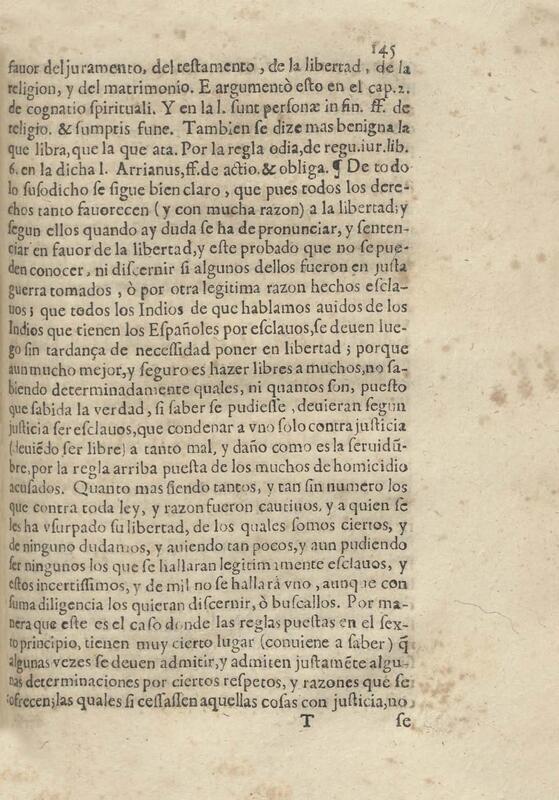 145
fauor del juramento, del testamento, de la libertad, de la
religion, y del matrimonio. E argumentò esto en el cap. 2.
de cognatio spirituali. Y en la l. sunt personæ in fin. ff. de
religio. & sumptis fune. Tambien se dize mas benigna la
que libra, que la que ata. Por la regla odia, de regu. iur. lib.
6. en la dicha l. Arrianus, ff. de actio. & obliga. ¶ De todo
lo susodicho se sigue bien claro, que pues todos los dere-
chos tanto fauorecen (y con mucha razon) a la libertad; y
segun ellos quando ay duda se ha de pronunciar, y senten-
ciar en fauor de la libertad, y este probado que no se pue-
den conocer, ni discernir si algunos dellos fueron en justa
guerra tomados, ò por otra legitima razon hechos escla-
uos; que todos los Indios de que hablamos auidos de los
Indios que tienen los Españoles por esclauos, se deuen lue-
go sin tardança de necessidad poner en libertad; porque
aun mucho mejor, y seguro es hazer libres a muchos, no sa-
biendo determinadamente quales, ni quantos son, puesto
que sabida la verdad, si saber se pudiesse, deuieran segun
justicia ser esclauos, que condenar a vno solo contra justicia
(deuiẽdo ser libre) a tanto mal, y daño como es la seruidũ-
bre, por la regla arriba puesta de los muchos de homicidio
acusados. Quanto mas siendo tantos, y tan sin numero los
que contra toda ley, y razon fueron cautiuos, y a quien se
les ha vsurpado su libertad, de los quales somos ciertos, y
de ninguno dudamos, y auiendo tan pocos, y aun pudiendo
ser ningunos los que se hallaran legitimamente esclauos, y
estos incertissimos, y de mil no se hallarà vno, aunque con
suma diligencia los quieran discernir, ò buscallos. Por ma-
nera que este es el caso donde las reglas puestas en el sex-
to principio, tienen muy cierto lugar (conuiene a saber) q̃
algunas vezes se deuen admitir, y admiten justamẽte algu-
nas determinaciones por ciertos respetos, y razones que se
ofrecen; las quales si cessassen aquellas cosas con justicia, no
T se